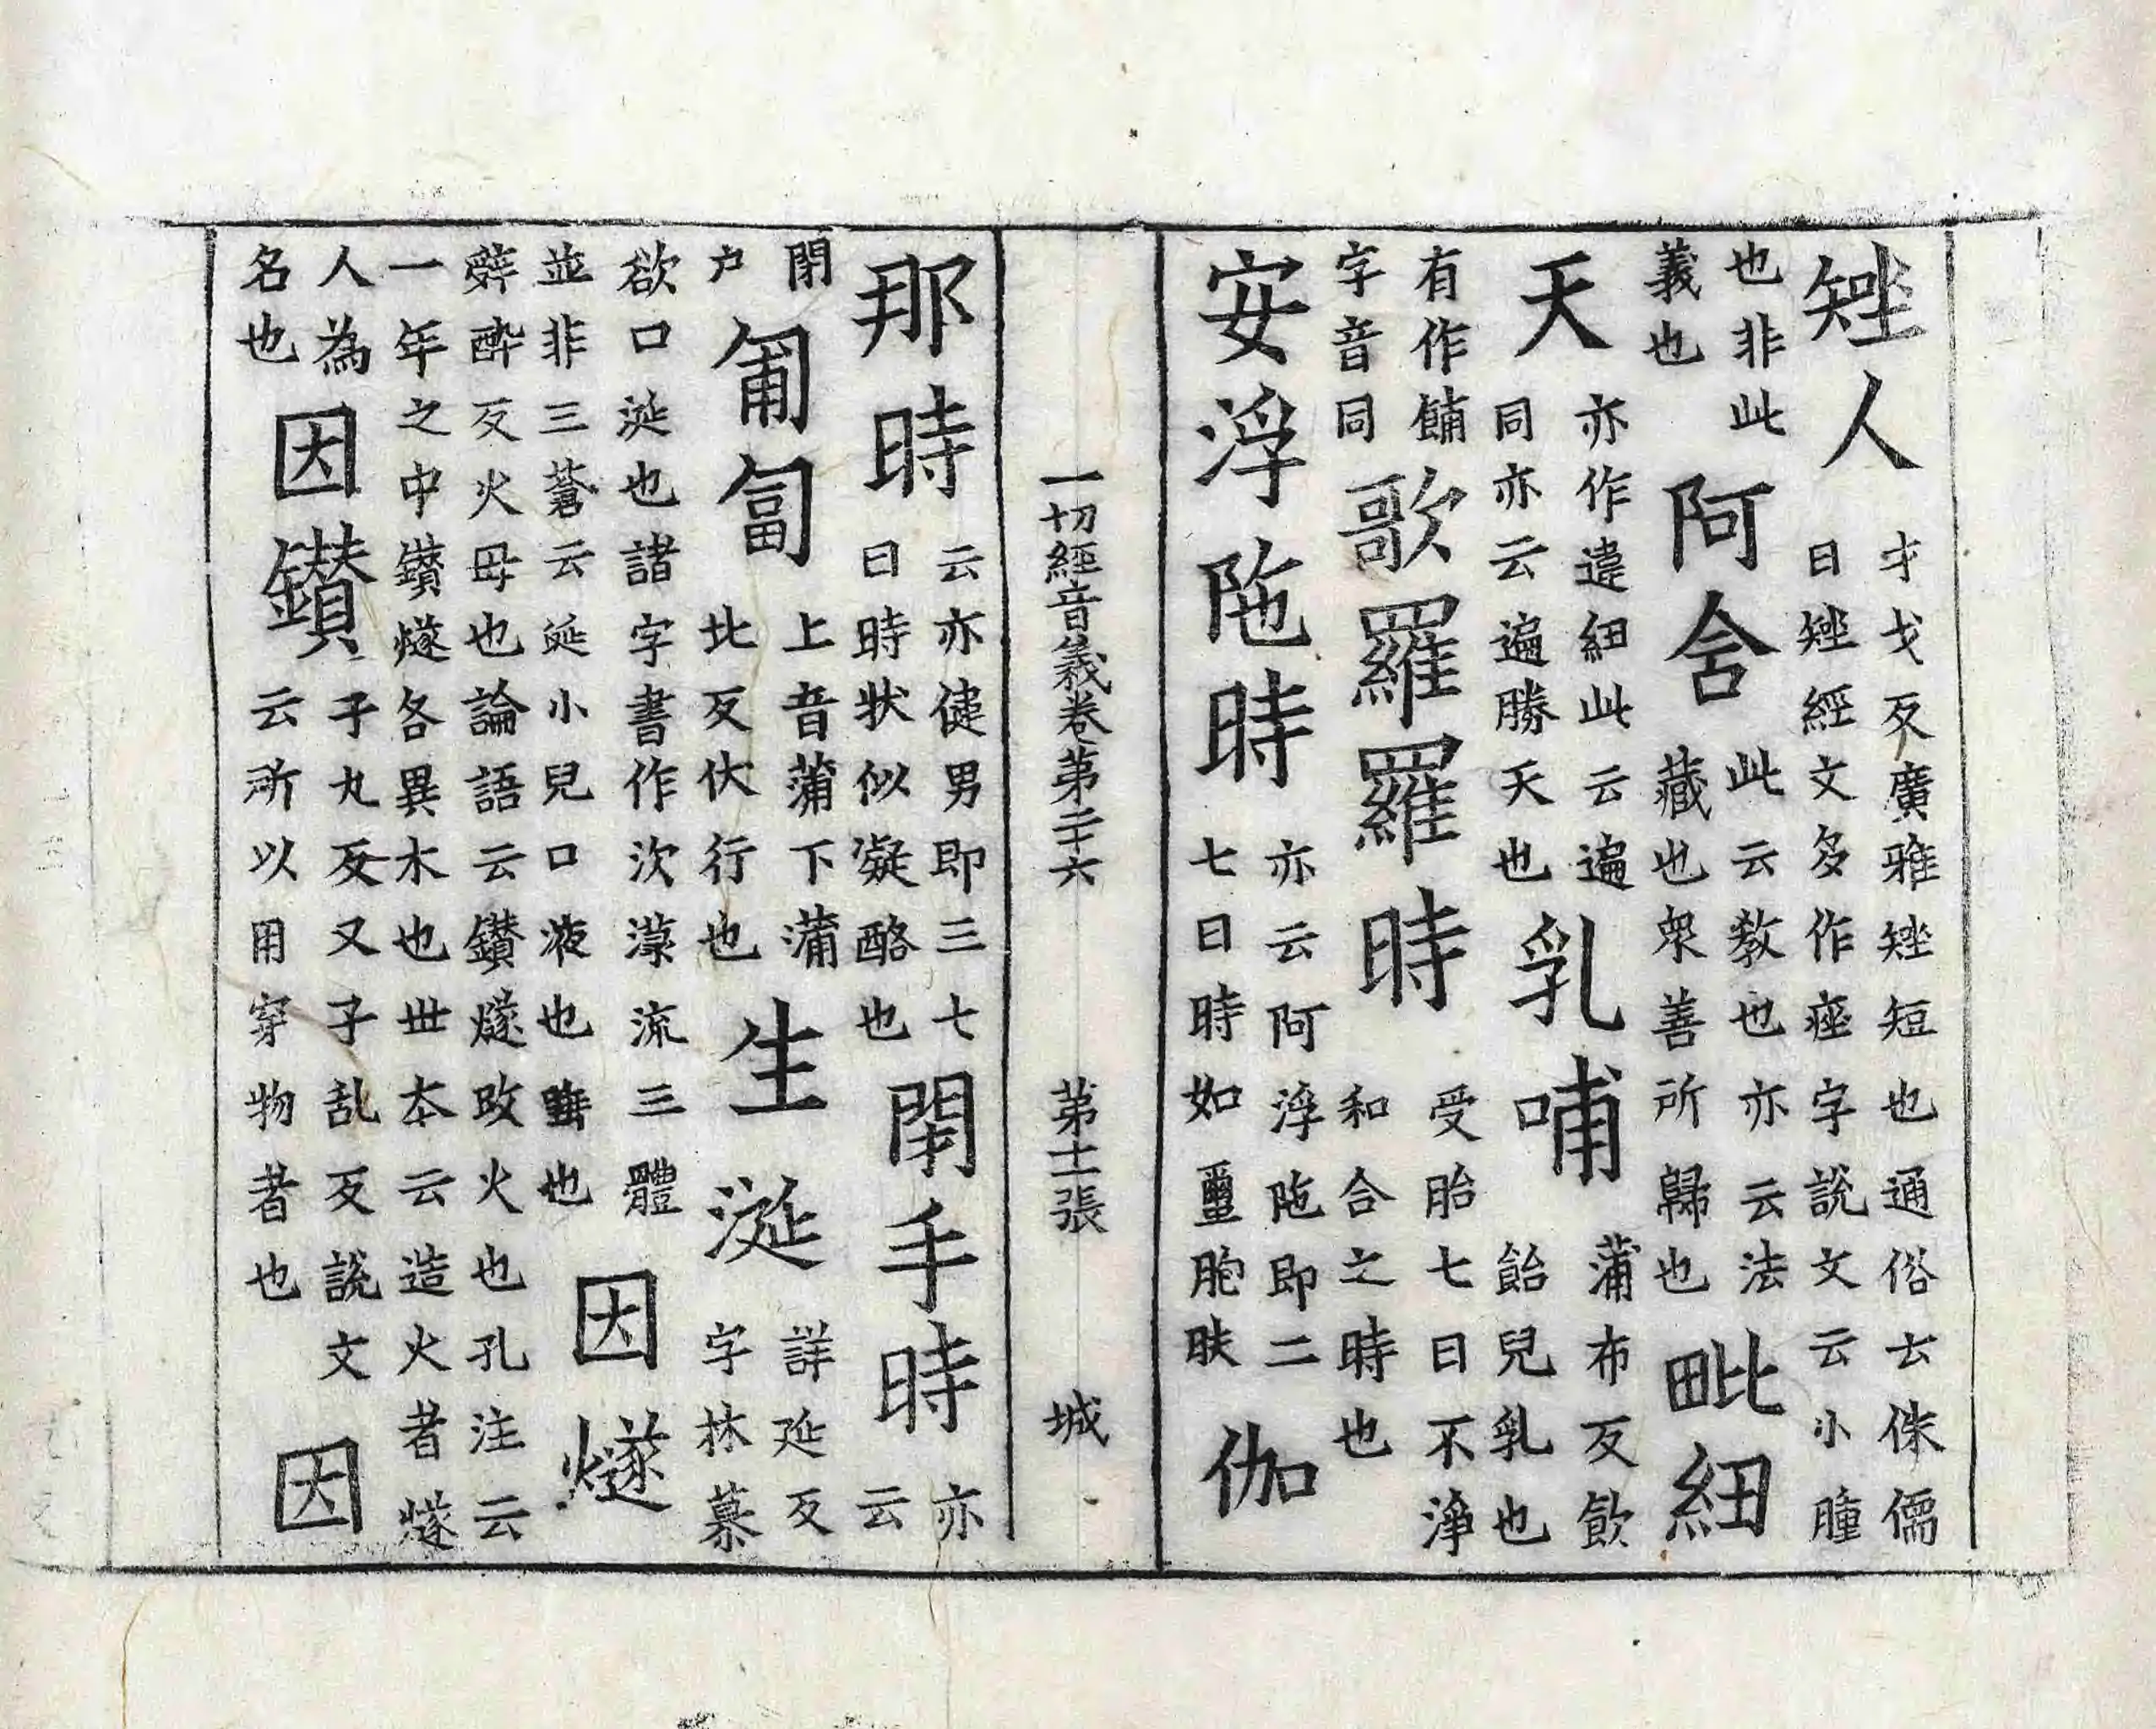 矬人
才戈反廣雅矬短也通俗云侏儒
曰矬經文多作痤字說文云小腫
也非此
義也
阿含
此云教也亦云法
藏也衆善所歸也
毗紐
天
亦作違紐此云遍
同亦云遍勝天也
乳哺
蒲布反飲
飴兒乳也
有作餔
字音同
歌羅羅時
受胎七日不淨
和合之時也
安浮陁時
亦云阿浮陁即二
七日時如胞肰
伽
一切經音義卷第二十六 第十二張 城
那時
云亦健男即三七
日時狀似凝酪也
閉手時
亦
云
閉
戶
匍匐
上音蒲下蒲
北反伏行也
生涎
詳延反
字林慕
欲口涎也諸字書作次㳄流三體
並非三蒼云涎小兒口液也唾也
因燧
辝醉反火母也論語云鑽燧改火也孔注云
一年之中鑽燧各異木也世本云造火者燧
人為
名也
因鑽
子丸反又子乱反說文
云所以用穿物者也
因